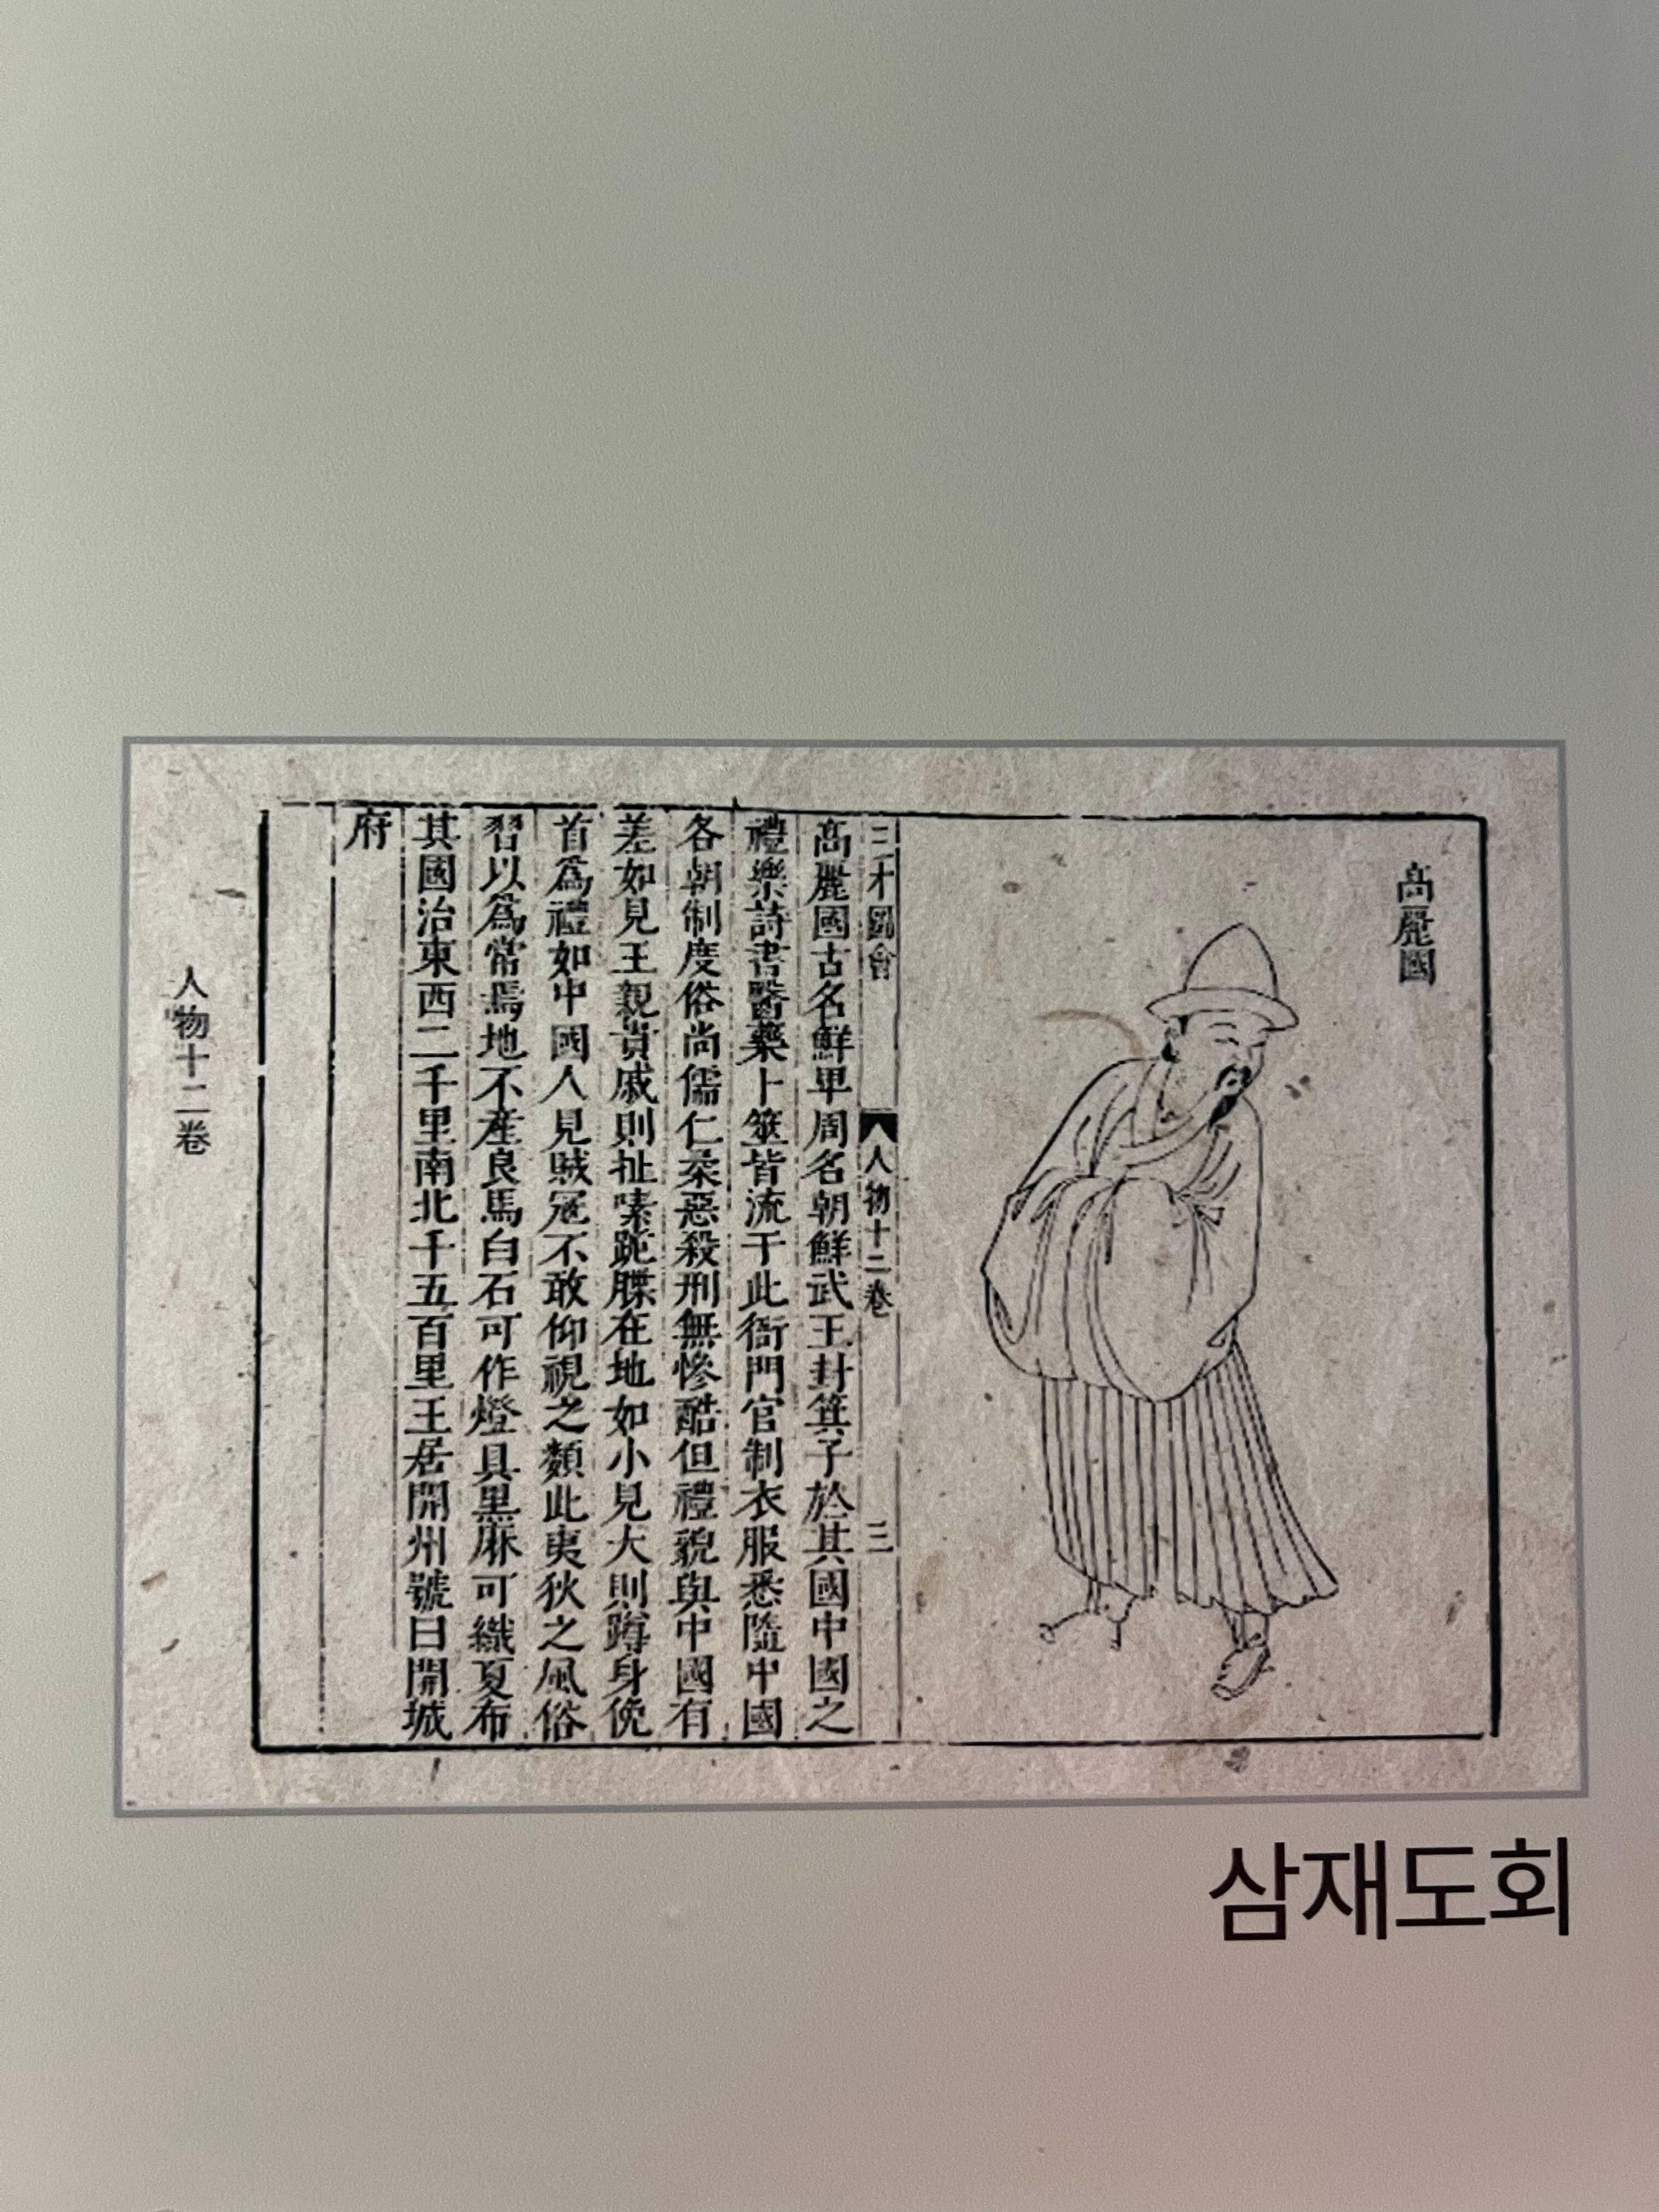 高麗國
三才圖會
人物十二卷
三
高麗國古名鮮卑周名朝鮮武王封箕子於其國中國之
禮樂詩書醫藥卜筮皆流于此衙門官制衣服悉隨中國
各朝制度俗尚儒仁柔惡殺刑無慘酷但禮貌與中國有
差如見王親貴戚則扯嗉跪䐑在地如小見大則蹲身俛
首爲禮如中國人見賊冦不敢仰視之類此夷狄之風俗
習以爲常焉地不產良馬白石可作燈具黑麻可織夏布
其國治東西二千里南北千五百里王居開州號曰開城
府
人物十二卷
삼재도회